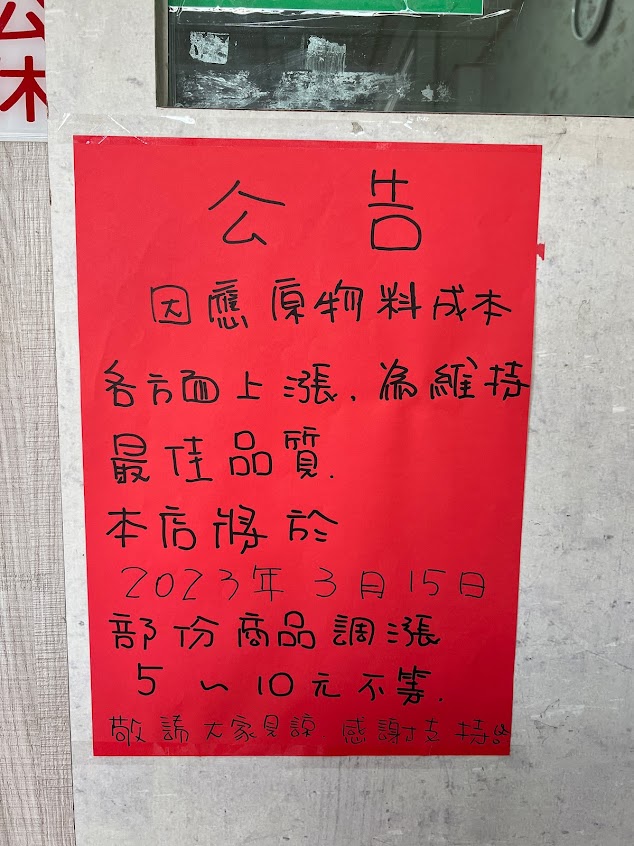 公休
公告
因應原物料成本
各方面上漲.為維持
最佳品質.
本店將於
2023年3月15日
部份商品調漲
5~10元不等.
敬請大家見諒 感謝支持